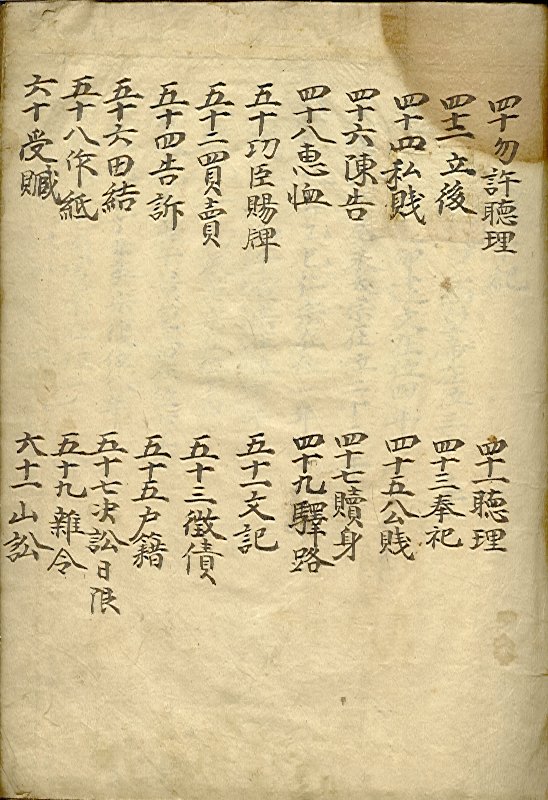 四十勿許聽理 四十一聽理
四十二立後 四十三奉祀
四十四私賤 四十五公賤
四十六陳告 四十七贖身
四十八惠恤 四十九驛路
五十功臣賜牌 五十一文記
五十二買賣 五十三徵債
五十四告訴 五十五户籍
五十六田結 五十七决訟日限
五十八作紙 五十九雜令
六十受贓 六十一山訟